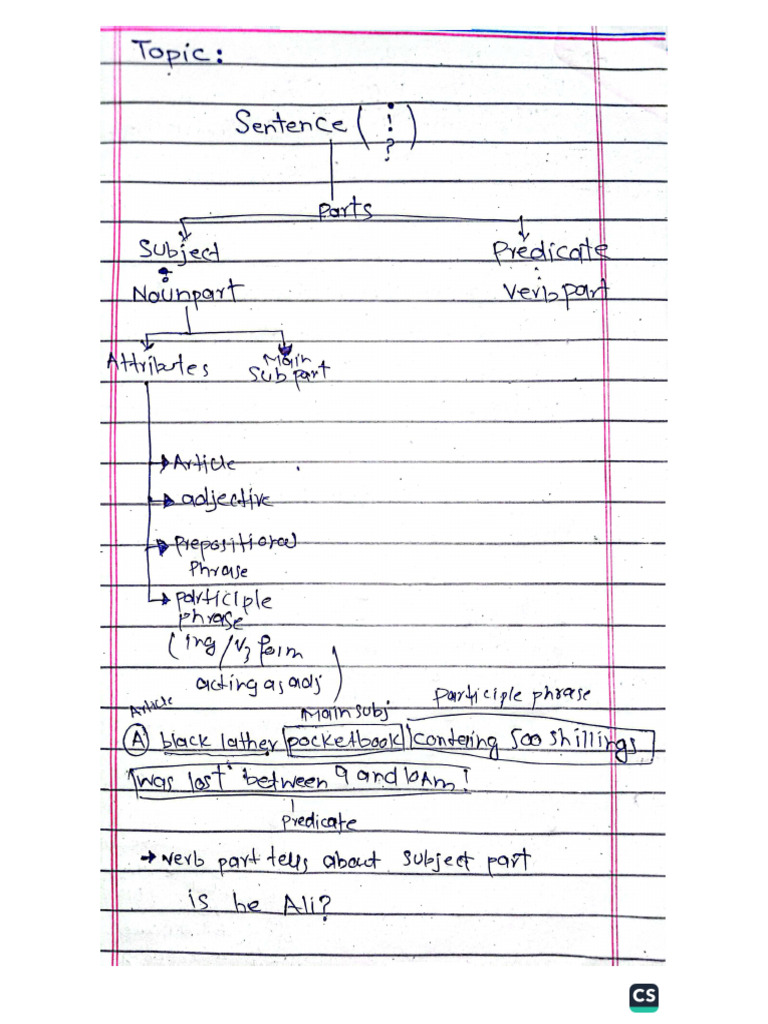 Topic:
Sentence ( . ! ? )
Parts
Subject Predicate
Nounpart Verb part
Attributes Main
Sub part
Article
adjective
Prepositional
Phrase
participle
phrase
(ing/V3 form
acting as adj)
Article Main subj Participle phrase
A black lather pocketbook contering 500 shillings
was lost between 9 and 10 Am!
predicate
→ verb part tells about subject part
is he Ali?
CS